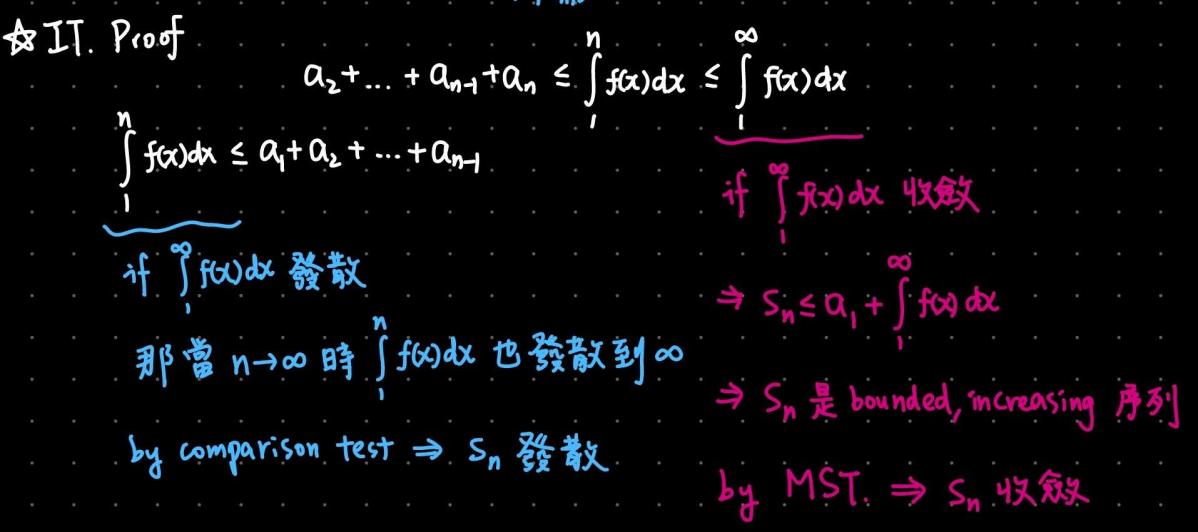 ☆ IT. Proof
a₂+...+aₙ₋₁+aₙ ≤ ∫₁ⁿ f(x)dx ≤ ∫₁^∞ f(x)dx
∫₁ⁿ f(x)dx ≤ a₁+a₂+...+aₙ₋₁
if ∫₁^∞ f(x)dx 發散
那當 n→∞ 時 ∫₁ⁿ f(x)dx 也發散到 ∞
by comparison test ⇒ Sₙ 發散
if ∫₁^∞ f(x)dx 收斂
⇒ Sₙ ≤ a₁ + ∫₁^∞ f(x)dx
⇒ Sₙ 是 bounded, increasing 序列
by MST. ⇒ Sₙ 收斂